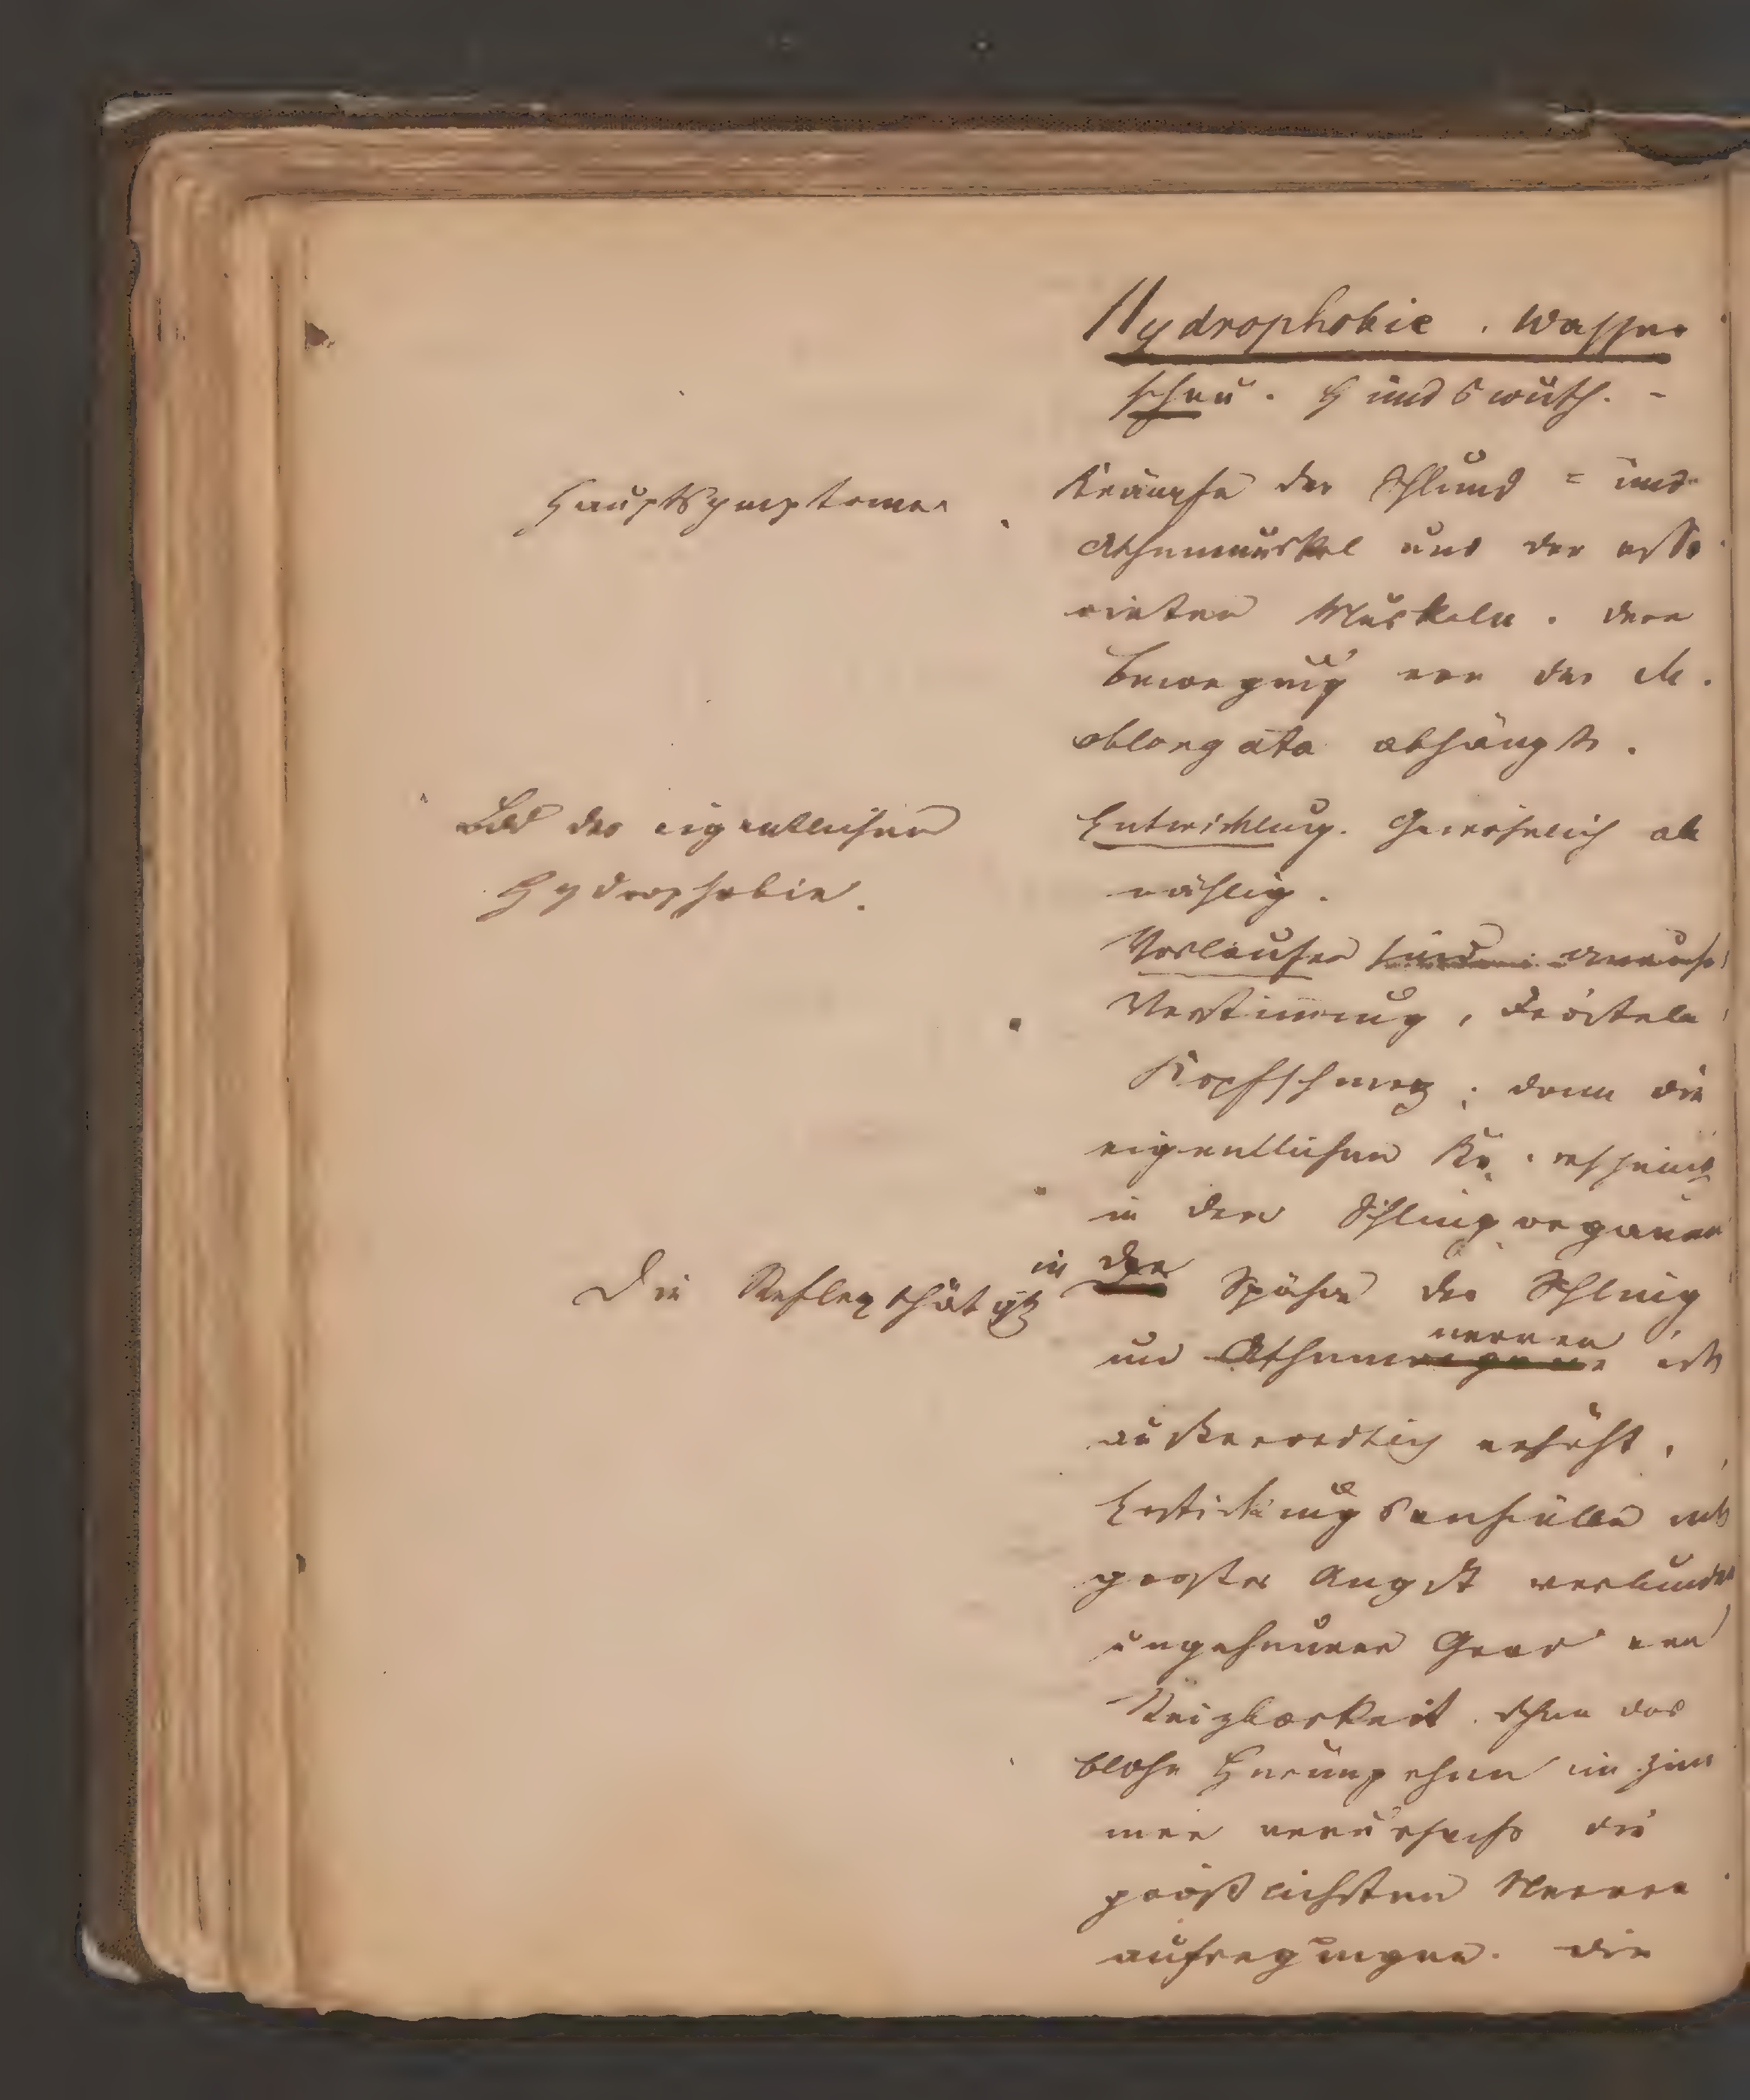 Hydrophobie. Wasser
scheu. Hundswuth. -
Hauptsymptome.
Krämpfe der Schlund = und
Athemmuskel und der asso
ciirten Muskeln. deren
Bewegung von der M.
oblongata abhängt.
Bild der eigentlichen
Hydrophobie.
Entwicklung. Gewöhnlich all
mählig.
Vorläufer sind
Verstimmung, Frösteln
Kopfschmerz; dann die
eigentlichen
in den Schlingorganen
Die Reflexthätigk in der Sphäre der Schling
nerven
und Athemorgane ist
außerordtlich erhöht.
Erstickungsanfälle mit
großer Angst verbunden
ungeheurer Grad von
Reizbarkeit. schon das
bloße Herumgehen im Zim
mer verursacht die
gräßlichsten Nerven
aufregungen. Die